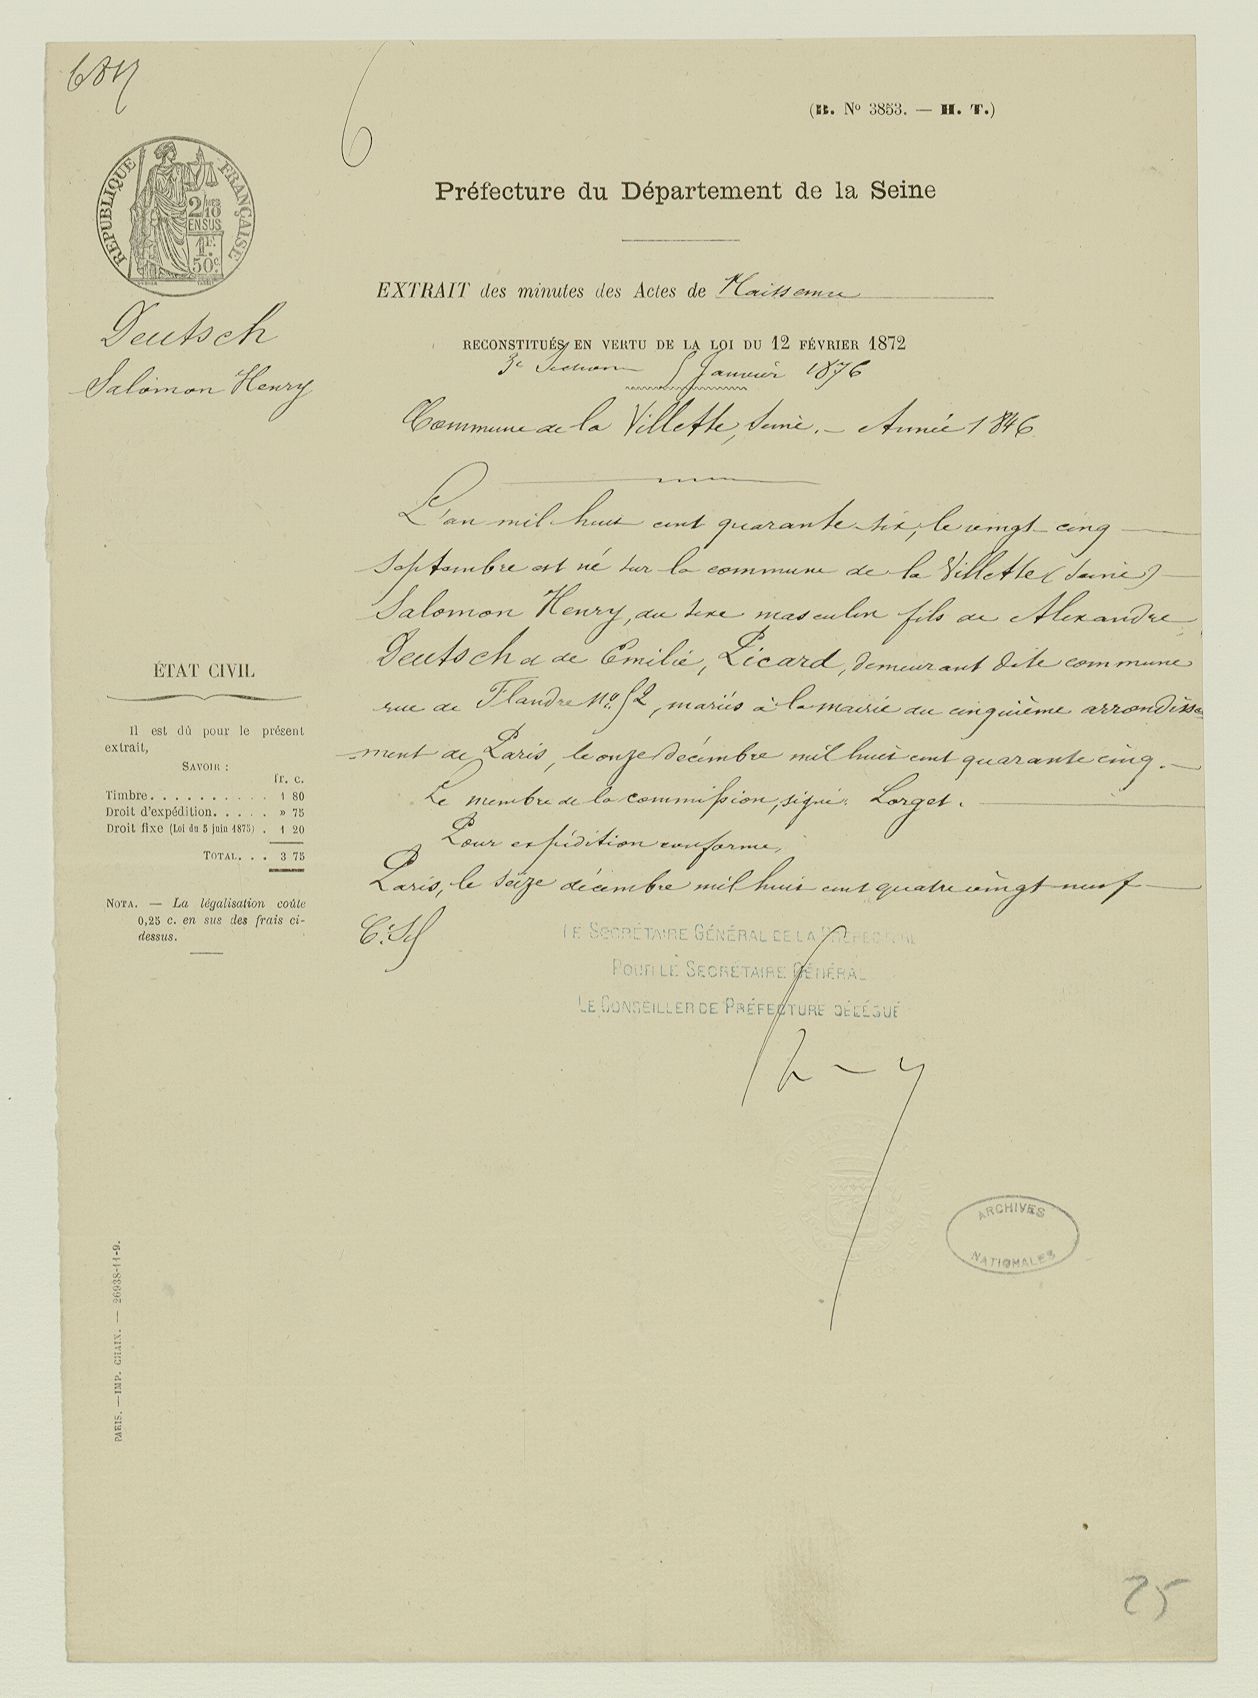 6
(B. Nº 3853. — H. T.)
RÉPUBLIQUE FRANÇAISE
2/10
EN SUS
1F.
50c.
Préfecture du Département de la Seine
EXTRAIT des minutes des Actes de Naissance
RECONSTITUÉS EN VERTU DE LA LOI DU 12 FÉVRIER 1872
3e Section 5 Janvier 1876
Deutsch
Salomon Henry
Commune de la Villette, Seine. — Année 1846
L'an mil huit cent quarante-six, le vingt-cinq
septembre est né sur la commune de la Villette (Seine)
Salomon Henry, du sexe masculin fils de Alexandre
Deutsch et de Emilie, Picard, demeurant dite commune
rue de Flandre No. 52, mariés à la mairie du cinquième arrondisse
-ment de Paris, le onze décembre mil huit cent quarante cinq.
Le membre de la commission, signé: Lorget.
Pour expédition conforme,
Paris, le seize décembre mil huit cent quatre vingt neuf
LE SECRÉTAIRE GÉNÉRAL DE LA PRÉFECTURE
POUR LE SECRÉTAIRE GÉNÉRAL
LE CONSEILLER DE PRÉFECTURE DÉLÉGUÉ
ÉTAT CIVIL
Il est dû pour le présent
extrait,
SAVOIR :
fr. c.
Timbre. . . . . . . . . . . 1 80
Droit d'expédition. . . . . » 75
Droit fixe (Loi du 5 juin 1875) . 1 20
TOTAL. . . 3 75
NOTA. — La légalisation coûte
0,25 c. en sus des frais ci-
dessus.
ARCHIVES
NATIONALES
PARIS. — IMP. CHAIX. — 26938-11-9.
25